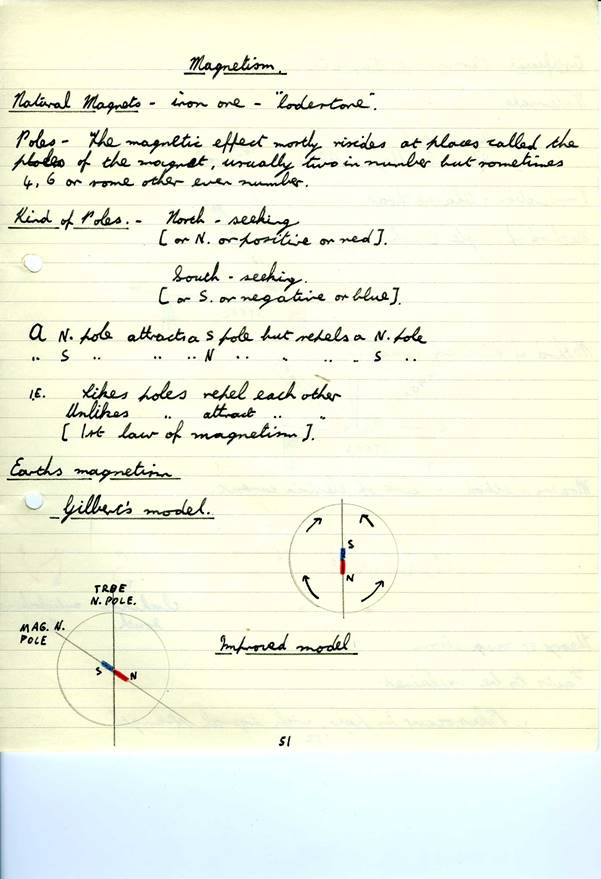 Magnetism.
Natural Magnets - iron ore - "lodestone".
Poles - The magnetic effect mostly resides at places called the
poles of the magnet, usually two in number but sometimes
4, 6 or some other even number.
Kind of Poles. - North - seeking
[or N. or positive or red].
South - seeking.
[or S. or negative or blue].
A N. pole attracts a S pole but repels a N. pole
" S " " " N " " " " S "
I.E. Likes poles repel each other
Unlikes " attract " "
[1st law of magnetism].
Earths magnetism
Gilbert's model.
S
N
TRUE
N. POLE.
MAG. N.
POLE
S N
Improved model
51